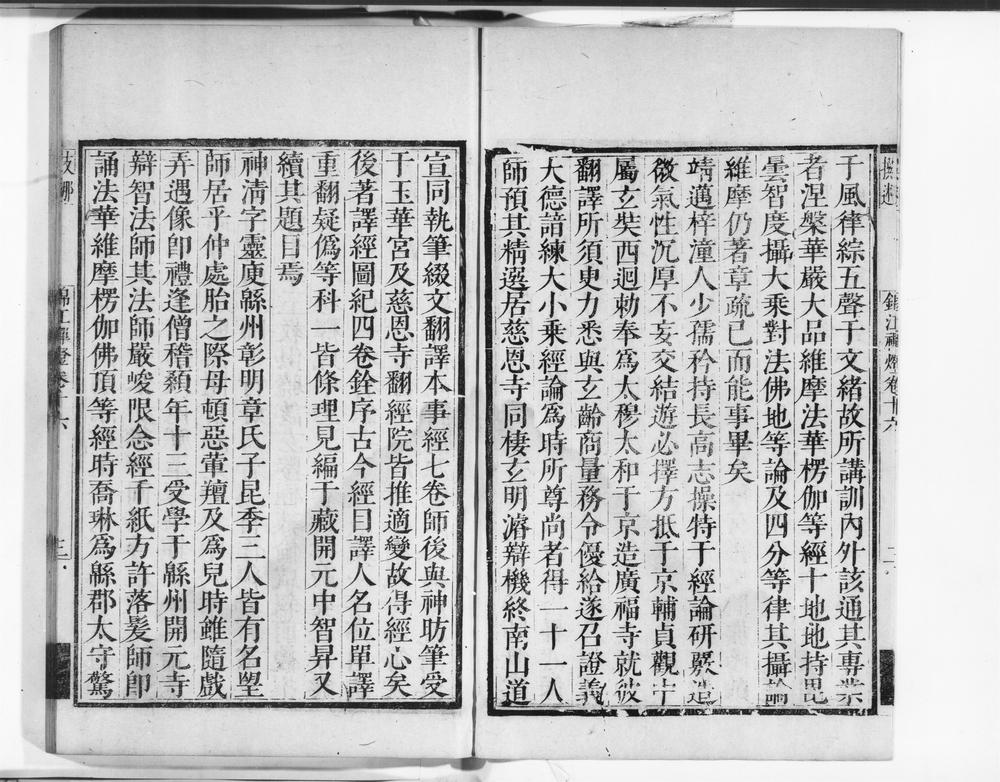 于風律綜五聲于文緒故所講訓內外該通其專業
者涅槃華嚴大品維摩法華楞伽等經十地地持毘
曇智度攝大乘對法佛地等論及四分等律其攝論
維摩仍著章疏已而能事畢矣
靖邁梓潼人少孺矜持長高志操特于經論研覈造
微氣性沉厚不妄交結遊必擇方抵于京輔貞觀中
屬玄奘西迴勅奉爲太穆太和于京造廣福寺就彼
翻譯所須吏力悉與玄齡商量務令優給遂召證義
大德諳練大小乘經論爲時所尊尚者得一十一人
師預其精選居慈恩寺同棲玄明濬辯機終南山道
錦江禪燈卷十六
二
宣同執筆綴文翻譯本事經七卷師後與神昉筆受
于玉華宮及慈恩寺翻經院皆推適變故得經心矣
後著譯經圖紀四卷銓序古今經目譯人名位單譯
重翻疑僞等科一皆條理見編于藏開元中智昇又
續其題目焉
神清字靈庾緜州彰明章氏子昆季三人皆有名望
師居乎仲處胎之際母頓惡葷羶及爲兒時雖隨戲
弄遇像卽禮逢僧稽顙年十三受學于緜州開元寺
辯智法師其法師嚴峻限念經千紙方許落髮師卽
誦法華維摩楞伽佛頂等經時喬琳爲緜郡太守驚
錦江禪燈卷十六
三